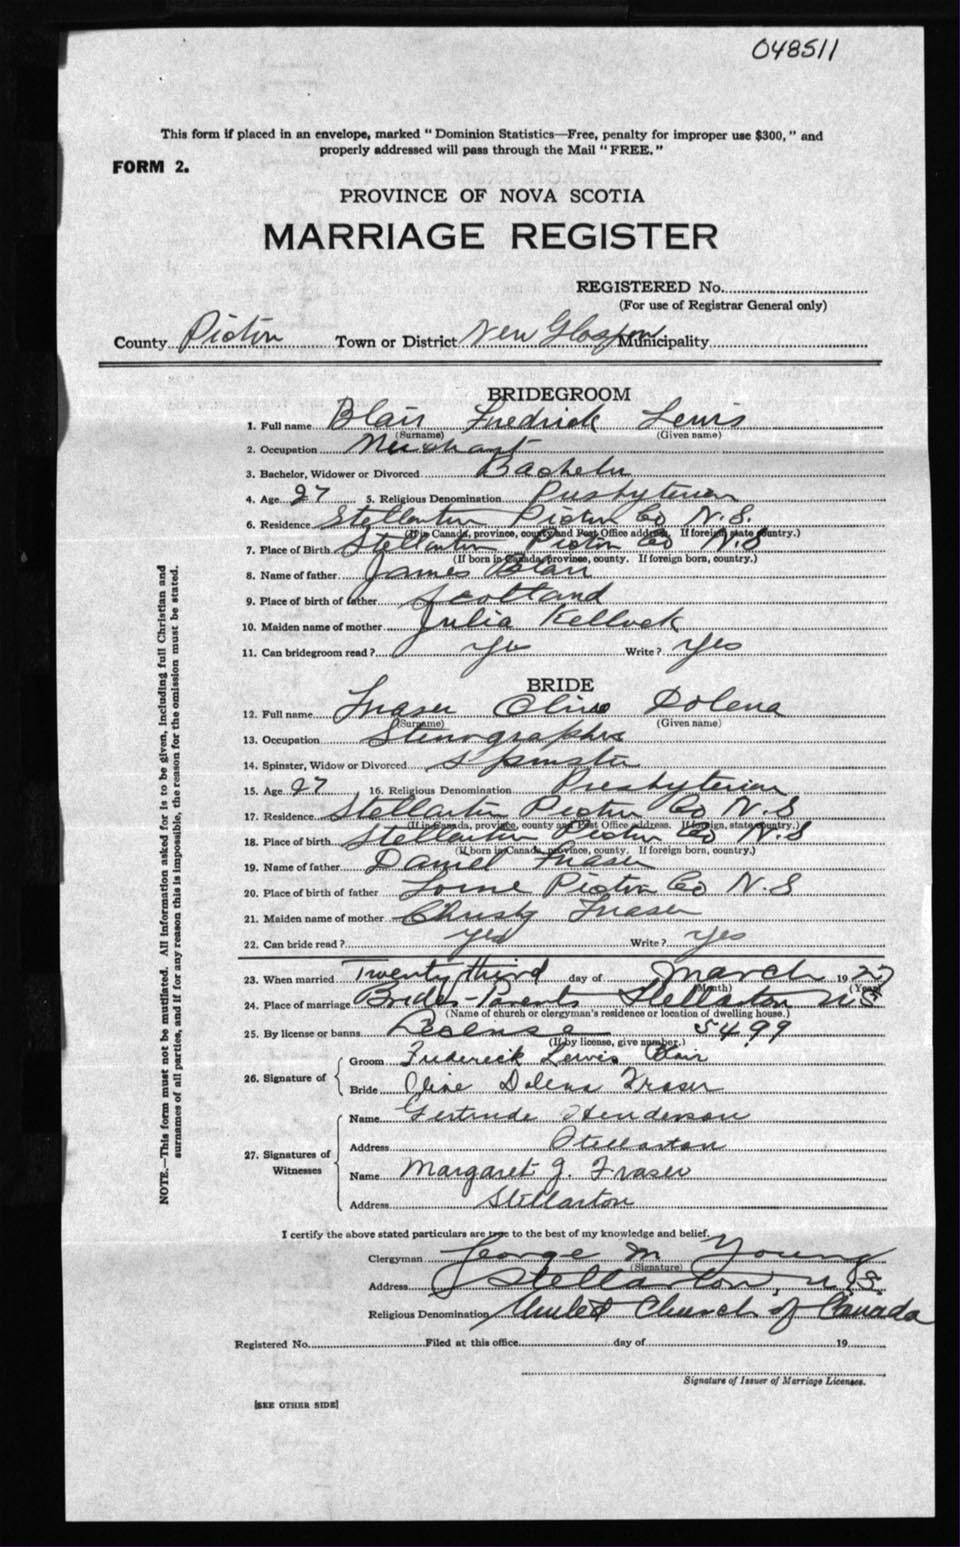 048511
This form if placed in an envelope, marked "Dominion Statistics—Free, penalty for improper use $300," and
properly addressed will pass through the Mail "FREE."
FORM 2.
PROVINCE OF NOVA SCOTIA
MARRIAGE REGISTER
REGISTERED No.
(For use of Registrar General only)
County Pictou Town or District New Glasgow Municipality
BRIDEGROOM
1. Full name Blair Fredrick Lewis
(Surname) (Given name)
2. Occupation Merchant
3. Bachelor, Widower or Divorced Bachelor
4. Age 27 5. Religious Denomination Presbyterian
6. Residence Stellarton Pictou Co N.S.
(If in Canada, province, county and Post Office address. If foreign, state country.)
7. Place of Birth Stellarton Pictou Co N.S
(If born in Canada, province, county. If foreign born, country.)
8. Name of father James Blair
9. Place of birth of father Scotland
10. Maiden name of mother Julia Kellock
11. Can bridegroom read? Yes Write? Yes
BRIDE
12. Full name Fraser Olive Dolena
(Surname) (Given name)
13. Occupation Stenographer
14. Spinster, Widow or Divorced Spinster
15. Age 27 16. Religious Denomination Presbyterian
17. Residence Stellarton Pictou Co N.S
(If in Canada, province, county and Post Office address. If foreign, state country.)
18. Place of birth Stellarton Pictou Co N.S
(If born in Canada, province, county. If foreign born, country.)
19. Name of father Daniel Fraser
20. Place of birth of father Lorne Pictou Co N.S
21. Maiden name of mother Christy Fraser
22. Can bride read? yes Write? yes
23. When married Twenty third day of March 1927
(Month) (Year)
24. Place of marriage Brides-Parents Stellarton N.S
(Name of church or clergyman's residence or location of dwelling house.)
25. By license or banns License 5499
(If by license, give number.)
26. Signature of Groom Frederick Lewis Blair
Bride Olive Dolena Fraser
27. Signatures of Witnesses Name Gertrude Henderson
Address Stellarton
Name Margaret J. Fraser
Address Stellarton
I certify the above stated particulars are true to the best of my knowledge and belief.
Clergyman George M Young
(Signature)
Address Stellarton, N.S.
Religious Denomination United Church of Canada
Registered No. Filed at this office day of 19
Signature of Issuer of Marriage Licenses.
[SEE OTHER SIDE]
NOTE.—This form must not be mutilated. All information asked for is to be given, including full Christian and
surnames of all parties, and if for any reason this is impossible, the reason for the omission must be stated.